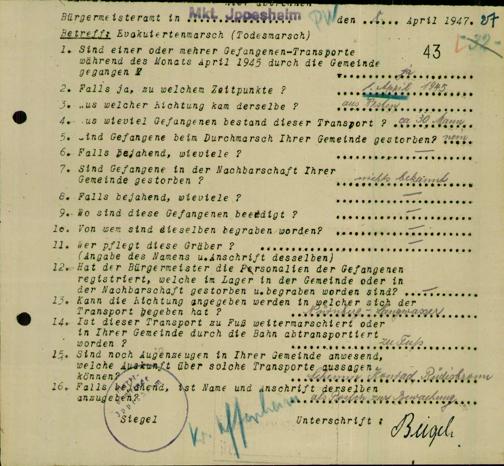 Bürgermeisteramt in Mkt. Ippesheim den 5. April 1947. 27
Betreff: Evakuiertenmarsch (Todesmarsch)
43
1. Sind einer oder mehrer Gefangenen-Transporte
während des Monats April 1945 durch die Gemeinde
gegangen ? ja
2. Falls ja, zu welchem Zeitpunkte ? April 1945
3. Aus welcher Richtung kam derselbe ? aus
4. Aus wieviel Gefangenen bestand dieser Transport ? ca 30 Mann
5. Sind Gefangene beim Durchmarsch Ihrer Gemeinde gestorben? nein
6. Falls bejahend, wieviele ? —
7. Sind Gefangene in der Nachbarschaft Ihrer
Gemeinde gestorben ? nichts bekannt
8. Falls bejahend, wieviele ? —
9. Wo sind diese Gefangenen beerdigt ? —
10. Von wem sind dieselben begraben worden? —
11. Wer pflegt diese Gräber ?
(Angabe des Namens u. Anschrift desselben)
12. Hat der Bürgermeister die Personalien der Gefangenen
registriert, welche im Lager in der Gemeinde oder in
der Nachbarschaft gestorben u. begraben worden sind? —
13. Kann die Richtung angegeben werden in welcher sich der
Transport begeben hat ?
14. Ist dieser Transport zu Fuß weitermarschiert oder
in Ihrer Gemeinde durch die Bahn abtransportiert
worden ? zu Fuß
15. Sind noch Augenzeugen in Ihrer Gemeinde anwesend,
welche Auskunft über solche Transporte aussagen
können? Konrad
16. Falls bejahend, ist Name und Anschrift derselben
anzugeben? zur Bewachung
Siegel Kr. Uffenheim Unterschrift :